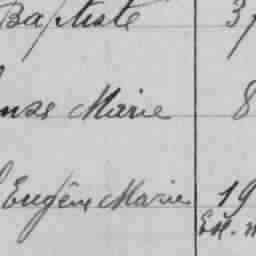 Baptiste 37
Marie 8
Eugène Marie 19